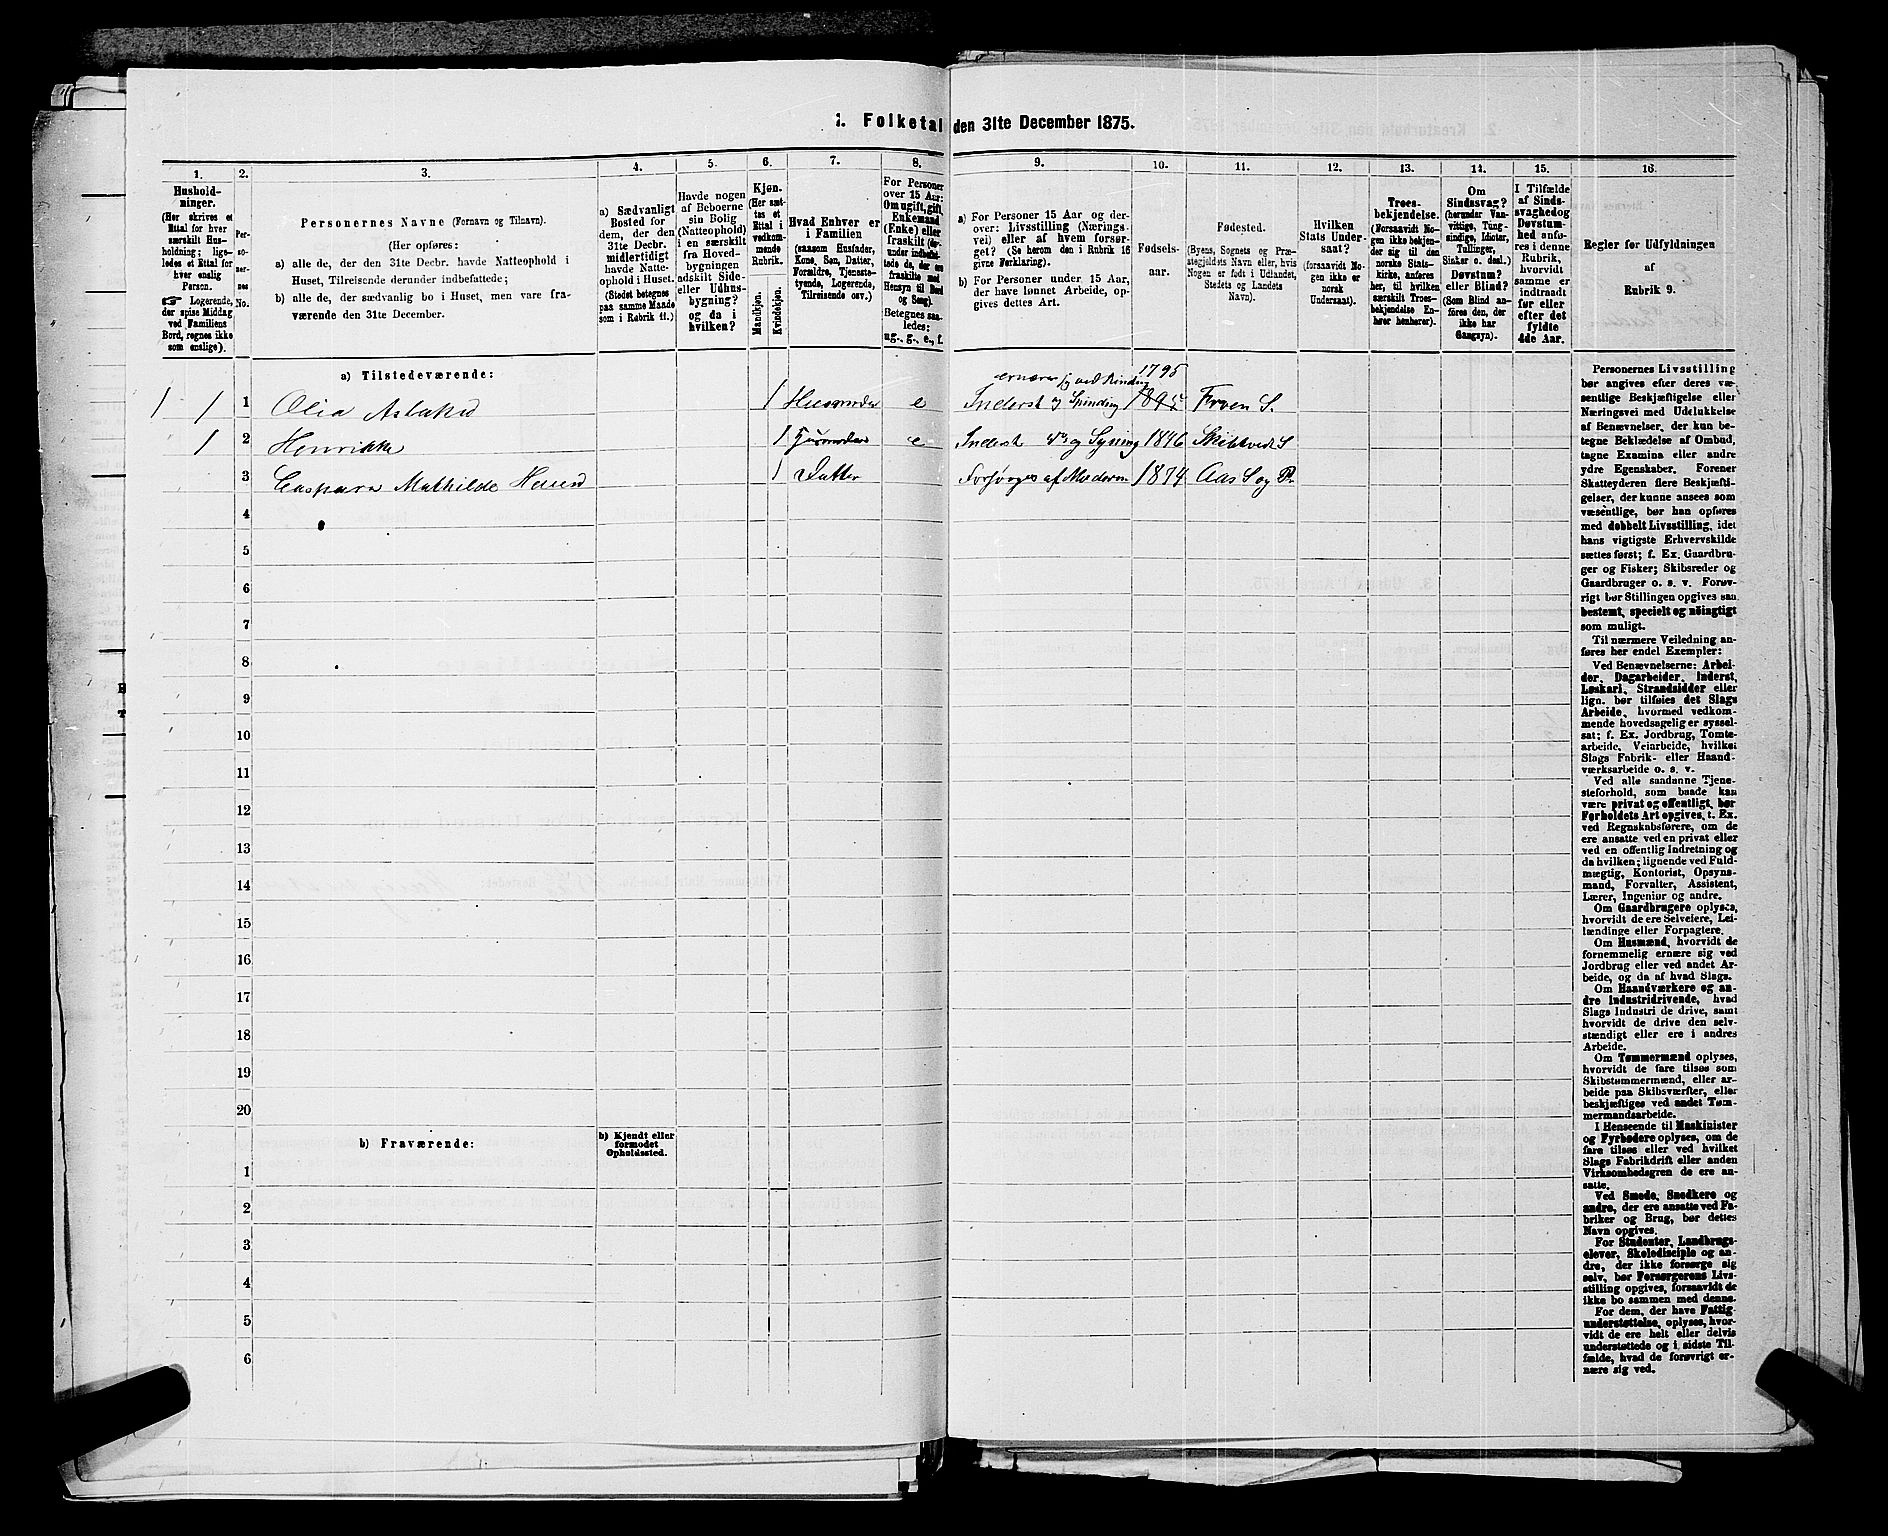 1. Folketal den 31te December 1875.
1. 2. 3. 4. 5. 6. 7. 8. 9. 10. 11. 12. 13. 14. 15. 16.
Hushold-
ninger.
(Her skrives et
Ettal for hver
særskilt Hus-
holdning; lige-
ledes et Ettal for
hver enslig
Person.
Logerende,
der spise Middag
ved Familiens
Bord, regnes ikke
som enslige).
Per-
so-
ner-
nes
No.
Personernes Navne (Fornavn og Tilnavn).
(Her opføres:
a) alle de, der den 31te Decbr. havde Natteophold i
Huset, Tilreisende derunder indbefattede;
b) alle de, der sædvanlig bo i Huset, men vare fra-
værende den 31te December.
a) Sædvanligt
Bosted for
dem, der den
31te Decbr.
midlertidigt
havde Natte-
ophold i Huset.
(Stedet betegnes
paa samme Maade
som i Rubrik 11.)
Havde nogen
af Beboerne
sin Bolig
(Natteophold)
i en særskilt
fra Hoved-
bygningen
adskilt Side
eller Udhus-
bygning?
og da i
hvilken?
Kjøn.
(Her sæt-
tes et
Ettal i
vedkom-
mende
Rubrik.
Mandkjøn.
Kvindekjøn.
Hvad Enhver er
i Familien
(saasom Husfader,
Kone, Søn, Datter,
Forældre, Tjeneste-
tyende, Logerende,
Tilreisende osv.)
For Personer
over 15 Aar:
Om ugift, gift,
Enkemand
(Enke) eller
fraskilt (der-
under indbefat-
tede de, der ere
fraskilte med
Hensyn til Bord
og Seng).
Betegnes saa-
ledes:
ug., g., e., f.
a) For Personer 15 Aar og der-
over: Livsstilling (Nærings-
vei) eller af hvem forsør-
get? (Se herom den i Rubrik 16
givne Forklaring).
b) For Personer under 15 Aar,
der have lønnet Arbeide, op-
gives dettes Art.
Fødsels-
aar.
Fødested.
(Byens, Sognets og Præ-
stegjeldets Navn eller, hvis
Nogen er født i Udlandet,
Stedets og Landets
Navn).
Hvilken
Stats Under-
saat?
(forsaavidt No-
gen ikke er
norsk
Undersaat).
Troes-
bekjendelse.
(Forsaavidt No-
gen ikke bekjen-
der sig til den
norske Stats-
kirke, anføres
her, til hvilken
særskilt Troes-
bekjendelse En-
hver henhører).
Om
Sindssvag?
(herunder Van-
vittige, Tung-
sindige, Idioter,
Tullinger,
Sinker o. desl.)
Døvstum?
eller Blind?
(Som Blind an-
føres den, der
ikke har
Gangsyn).
I Tilfælde
af Sinds-
svaghed og
Døvstum-
hed anfø-
res i denne
Rubrik,
hvorvidt
samme er
indtraadt
før eller
efter det
fyldte
4de Aar.
Regler for Udfyldningen
af
Rubrik 9.
a) Tilstedeværende:
1 1 1 Olia Aslaksd 1 Husmoder e ernærer sig ved Binding Inderst og Spinding 1795 Froen S.
1 2 Henrikka 1 Husmoder e Inderst do og Syning 1846 Skibtvedt S
3 Caspara Mathilde Hansd 1 Datter Forsørges af Moderen 1874 Aas S og P.
4
5
6
7
8
9
10
11
12
13
14
15
16
17
18
19
20
b) Fraværende:
b) Kjendt eller
formodet
Opholdssted.
1
2
3
4
5
6
Personernes Livsstilling
bør angives efter deres væ-
sentlige Beskjæftigelse eller
Næringsvei med Udelukkelse
af Benævnelser, der kun be-
tegne Beklædelse af Ombud,
tagne Examina eller andre
ydre Egenskaber. Forener
Skatteyderen flere Beskjæfti-
gelser, der kunne ansees som
væsentlige, bør han opføres
med dobbelt Livsstilling, idet
hans vigtigste Erhvervskilde
sættes først; f. Ex. Gaardbru-
ger og Fisker; Skibsreder og
Gaardbruger o. s. v. Forøv-
rigt bør Stillingen opgives saa
bestemt, specielt og nöiagtigt
som muligt.
Til nærmere Veiledning an-
føres her endel Exempler:
Ved Benævnelserne: Arbei-
der, Dagarbeider, Inderst,
Løskarl, Strandsidder eller
lign. bør tilføies det Slags
Arbeide, hvormed vedkom-
mende hovedsagelig er syssel-
sat; f. Ex. Jordbrug, Tomte-
arbeide, Veiarbeide, hvilket
Slags Fabrik- eller Haand-
værksarbeide o. s. v.
Ved alle saadanne Tjene-
steforhold, som baade kan
være privat og offentligt, bør
Forholdets Art opgives, t. Ex.
ved Regnskabsførere, om de
ere ansatte ved en privat eller
ved en offentlig Indretning og
da hvilken; lignende ved Fuld-
mægtig, Kontorist, Opsyns-
mand, Forvalter, Assistent,
Lærer, Ingeniør og andre.
Om Gaardbrugere oplyses,
hvorvidt de ere Selveiere, Lei-
lændinge eller Forpagtere.
Om Husmænd, hvorvidt de
fornemmelig ernære sig ved
Jordbrug eller ved andet Ar-
beide, og da af hvad Slags.
Om Haandværkere og an-
dre Industridrivende, hvad
Slags Industri de drive, samt
hvorvidt de drive den selv-
stændigt eller ere i andres
Arbeide.
Om Tømmermænd oplyses,
hvorvidt de fare tilsøs som
Skibstømmermænd, eller ar-
beide paa Skibsværfter, eller
beskjæftiges ved andet Tøm-
mermandsarbeide.
I Henseende til Maskinister
og Fyrbødere oplyses, om de
fare tilsøs eller ved hvilket
Slags Fabrikdrift eller anden
Virksomhedsgren de ere an-
satte.
Ved Smede, Snedkere og
andre, der ere ansatte ved Fa-
briker og Brug, bør dettes
Navn opgives.
For Studenter, Landbrugs-
elever, Skoledisciple og an-
dre, der ikke forsørge sig
selv, bør Forsørgerens Livs-
stilling opgives, forsaavidt de
ikke bo sammen med denne.
For dem, der have Fattig-
understøttelse, oplyses, hvor-
vidt de ere helt eller delvis
understøttede og i sidste Til-
fælde, hvad de forøvrigt er-
nære sig ved.